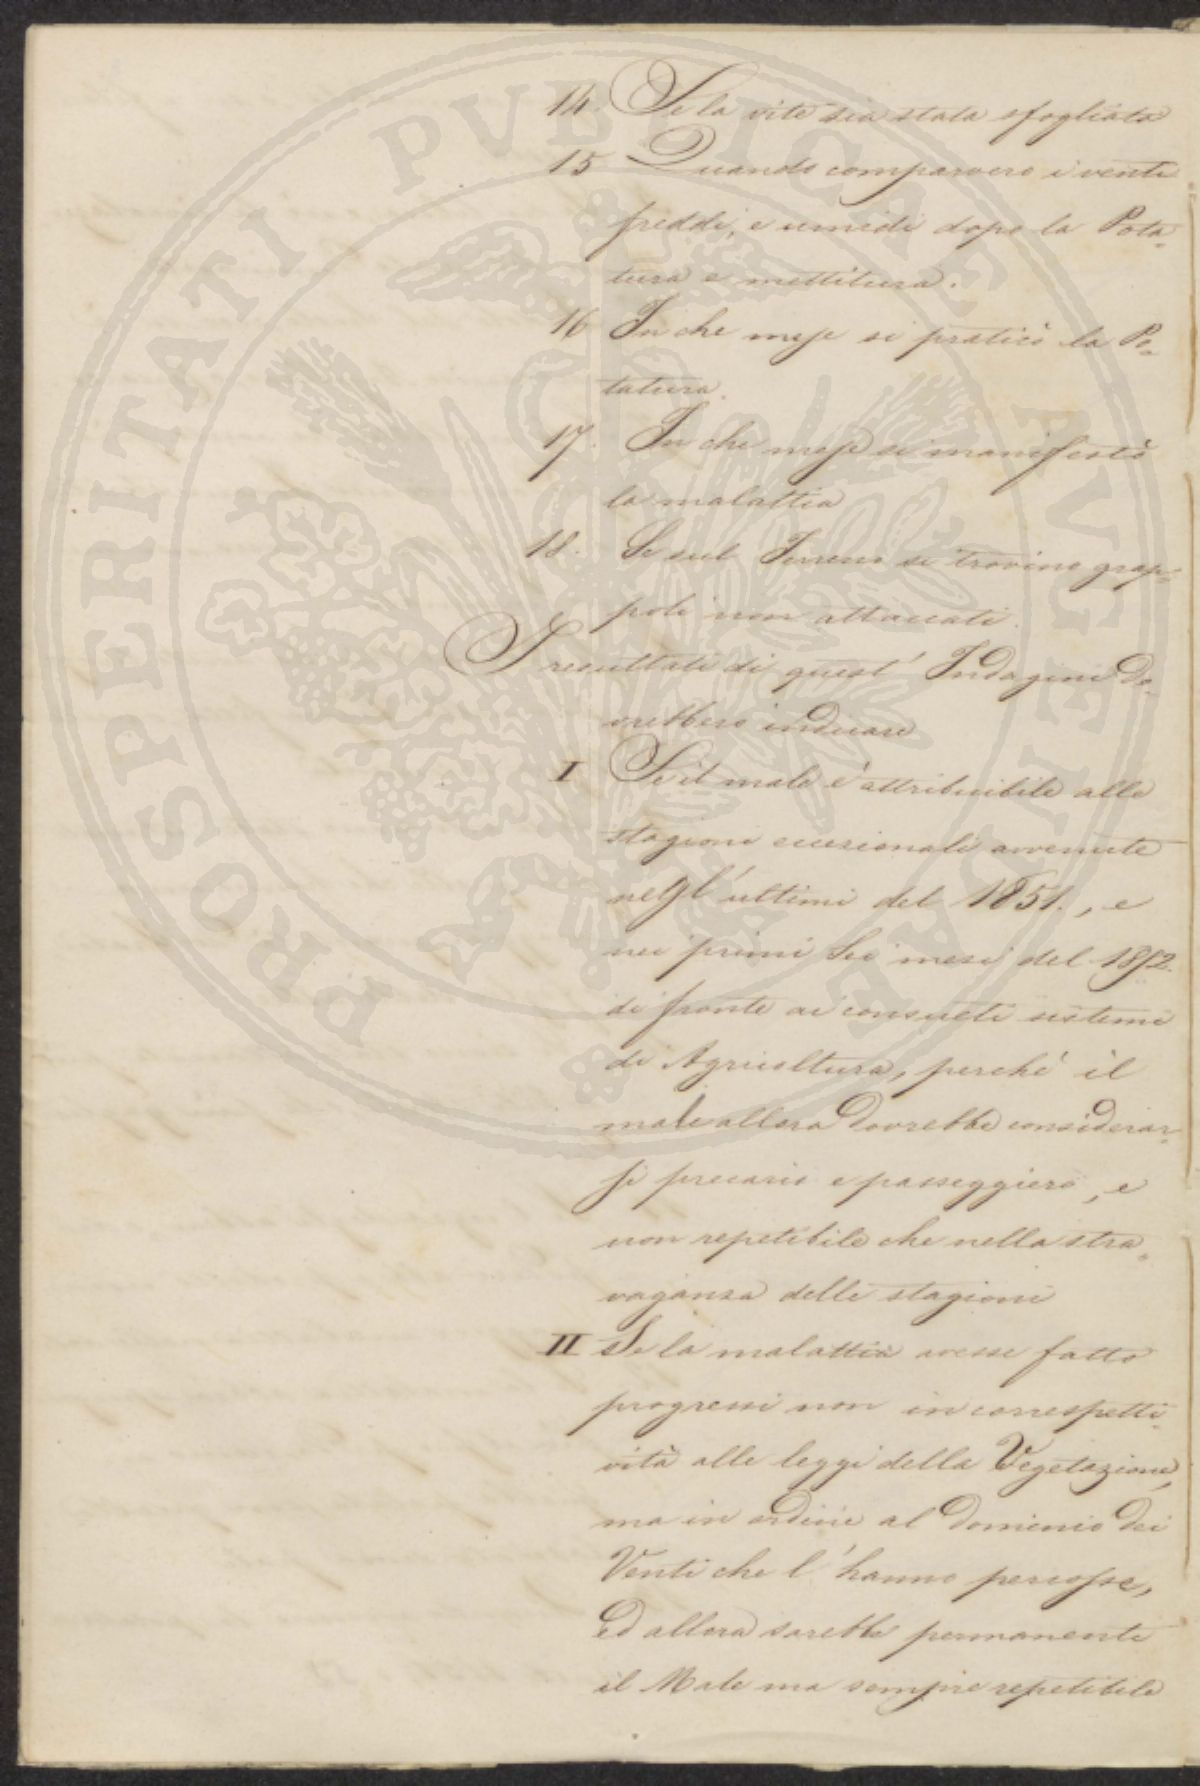 14. Se la vite sia stata sfogliata
15 Quando comparvero i venti
freddi, e umidi dopo la Pota=
tura e mettitura.
16 In che mese si praticò la Po=
tatura.
17. In che mese si manifestò
la malattia
18. Se sul Terreno si trovino grap=
poli non attaccati.
I resultati di quest' Indagini do=
vrebbero indicare
I Se il male è attribuibile alle
stagioni eccezionali avvenute
negl' ultimi del 1851., e
nei primi sei mesi del 1852.
di fronte ai consueti sistemi
di Agricoltura, perché il
male allora dovrebbe considerar=
si precario e passeggiero, e
non repetibile che nella stra=
vaganza delle stagioni
II Se la malattia avesse fatto
progressi non in correspetti=
vità alle leggi della Vegetazione,
ma in ordine al dominio dei
Venti che l' hanno percosse,
ed allora sarebbe permanente
il Male ma sempre repetibile
PROSPERITATI PVBLICAE AVGENDAE